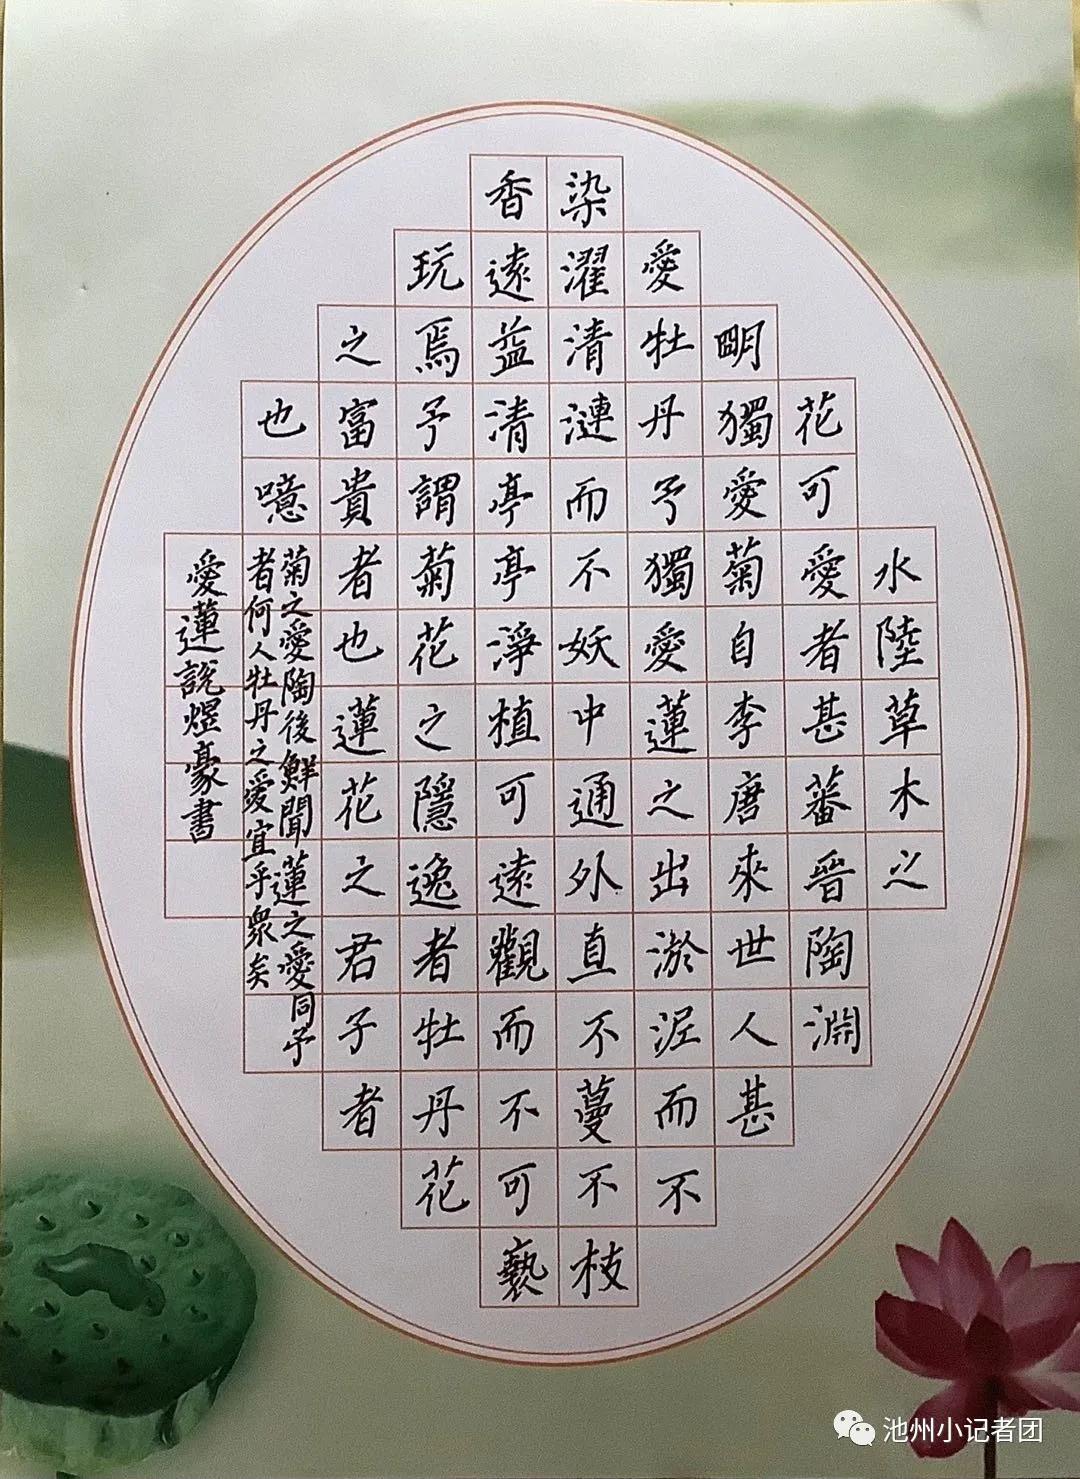 水陸草木之
花可愛者甚蕃晉陶淵
明獨愛菊自李唐來世人甚
愛牡丹予獨愛蓮之出淤泥而不
染濯清漣而不妖中通外直不蔓不枝
香遠益清亭亭淨植可遠觀而不可褻
玩焉予謂菊花之隱逸者牡丹花
之富貴者也蓮花之君子者
也噫
菊之愛陶後鮮聞蓮之愛同予
者何人牡丹之愛宜乎衆矣
愛蓮說煜豪書
池州小记者团